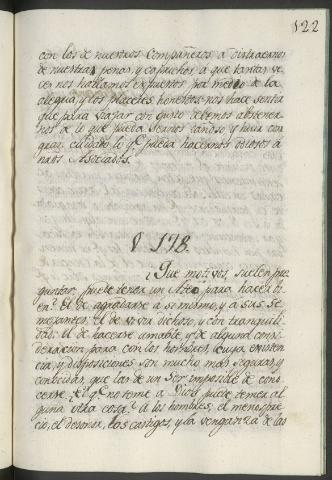 122
con los de nuestros Compañeros a distraernos
de nuestras penas, y caprichos a que tantas ve
ces nos hallamos expuestos por medio de la
alegria, y los placeres honestos: nos hace sentir
que para viajar con gusto debemos abstener
nos de lo que pueda sernos dañoso, y huir con
gran cuidado lo qe pueda hacernos odiosos a
nros Asociados.
§ 178.
¿Que motivos, suelen pre
guntar, puede tener un Ateo para hacer bi
en? El de agradarse a si mismo, y a sus Se
mejantes; el de vivir dichoso, y con tranquili
dad: el de hacerse amable, y de alguna consi
deracion para con los hombres, cuya existen
cia, y disposiciones son mucho mas seguras, y
conocidas, que las de un Ser imposible de cono
cerse. ¿El qe no teme a Dios puede temer al
guna otra cosa? a los hombres; el menospre
cio, el desonor, los castigos, y la venganza de las